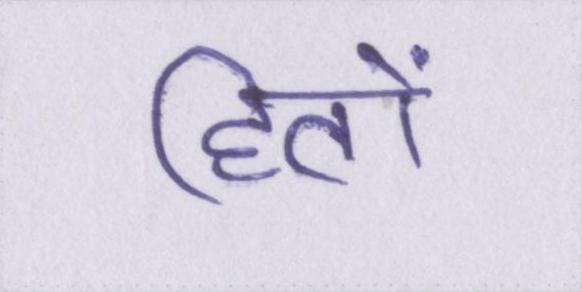 हितों